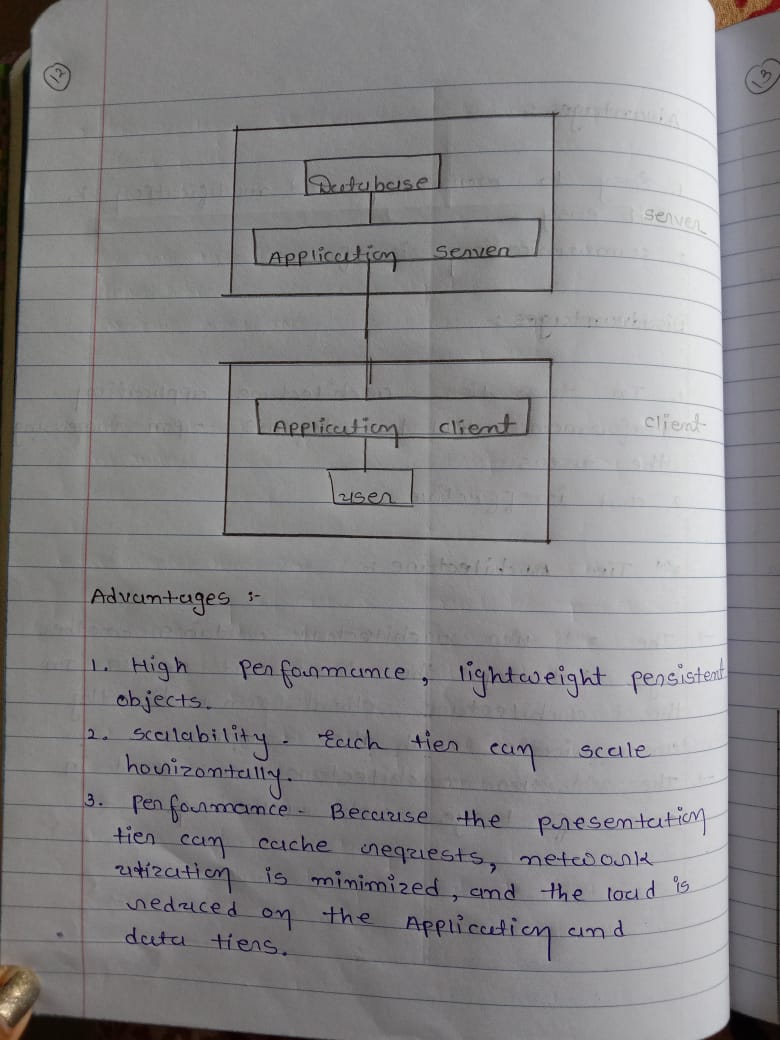 12
13
Database
server
Application server
Application client
client
user
Advantages :-
1. High performance, lightweight persistent
objects.
2. scalability - Each tier can scale
horizontally.
3. performance - Because the presentation
tier can cache requests, network
utization is minimized, and the load is
reduced on the Application and
data tiers.